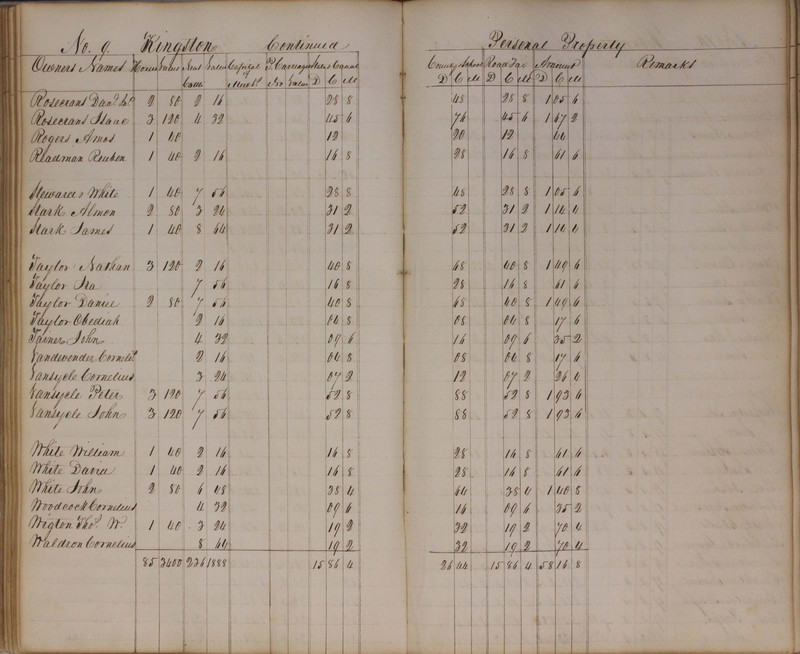 No. 9. Kingston Continued Personal Property
Owners Names Horses Value Neat Cattle Value Capital of Merch.t P. Carriages No Value State & Canal D C M County & School D C M Road Tax D C M Amount D C M Remarks
Rosecrans Dan.l 2 80 2 16 28 8 48 28 8 1 05 6
Rosecrans Isaac 3 120 4 32 45 6 76 45 6 1 67 2
Rogers Amos 1 40 12 20 12 44
Readman Reuben 1 40 2 16 16 8 28 16 8 61 6
White 1 40 7 56 28 8 48 28 8 1 05 6
Stark Almon 2 80 3 24 31 2 52 31 2 1 14 4
Stark James 1 40 8 64 31 2 52 31 2 1 14 4
Taylor Nathan 3 120 2 16 40 8 68 40 8 1 49 6
Taylor Ira 7 56 16 8 28 16 8 61 6
Taylor Daniel 2 80 7 56 40 8 68 40 8 1 49 6
Taylor Obediah 2 16 04 8 08 04 8 17 6
John 4 32 09 6 16 09 6 35 2
Vandewender Corneli.s 2 16 04 8 08 04 8 17 6
Vansycle Cornelius 3 24 07 2 12 07 2 26 4
Vansycle Peter 3 120 7 56 52 8 88 52 8 1 93 6
Vansycle John 3 120 7 56 52 8 88 52 8 1 93 6
White William 1 40 2 16 16 8 28 16 8 61 6
White Daniel 1 40 2 16 16 8 28 16 8 61 6
White John 2 80 6 48 38 4 64 38 4 1 40 8
Woodcock Cornelius 4 32 09 6 16 09 6 35 2
Wigton Tho.s W 1 40 3 24 19 2 32 19 2 70 4
Waldron Cornelius 8 64 19 2 32 19 2 70 4
85 3400 236 1888 15 86 4 26 44 15 86 4 58 16 8